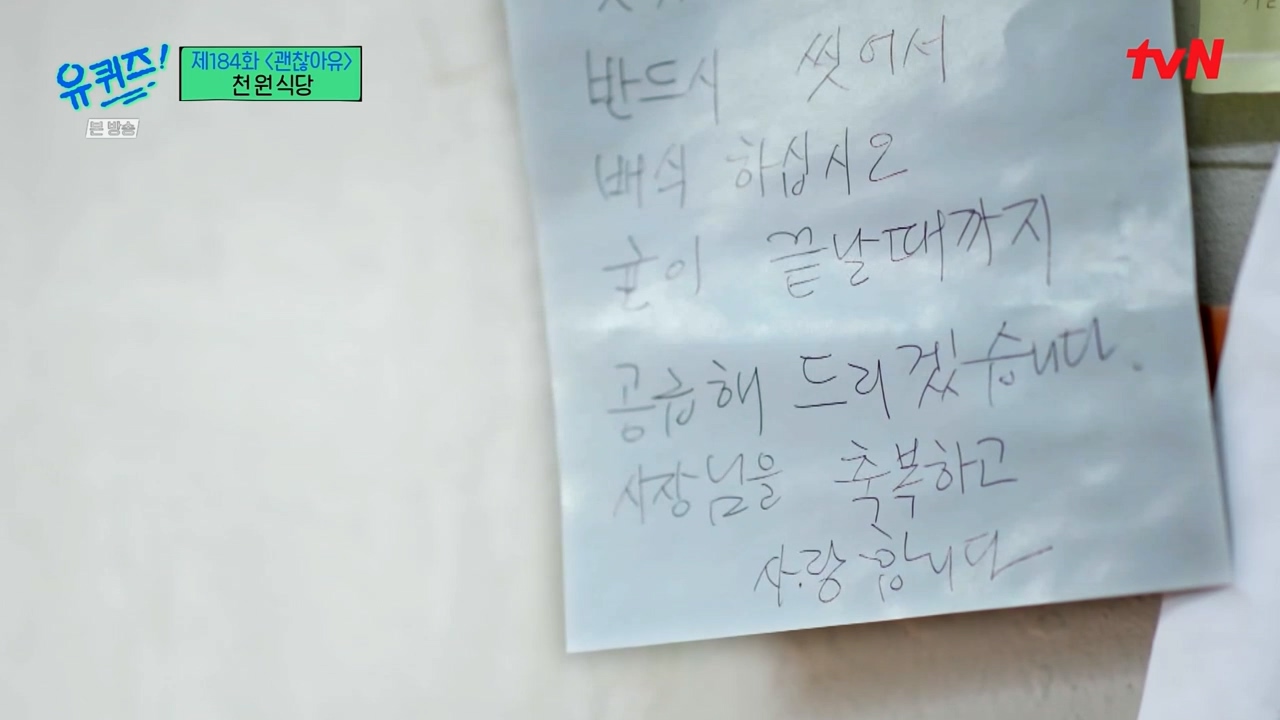 유퀴즈!
본 방송
제184화 <괜찮아유>
천원식당
tvN
반드시 씻어서
배식 하십시오
균이 끝날때까지
공급해 드리겠습니다.
사장님을 축복하고
사랑합니다